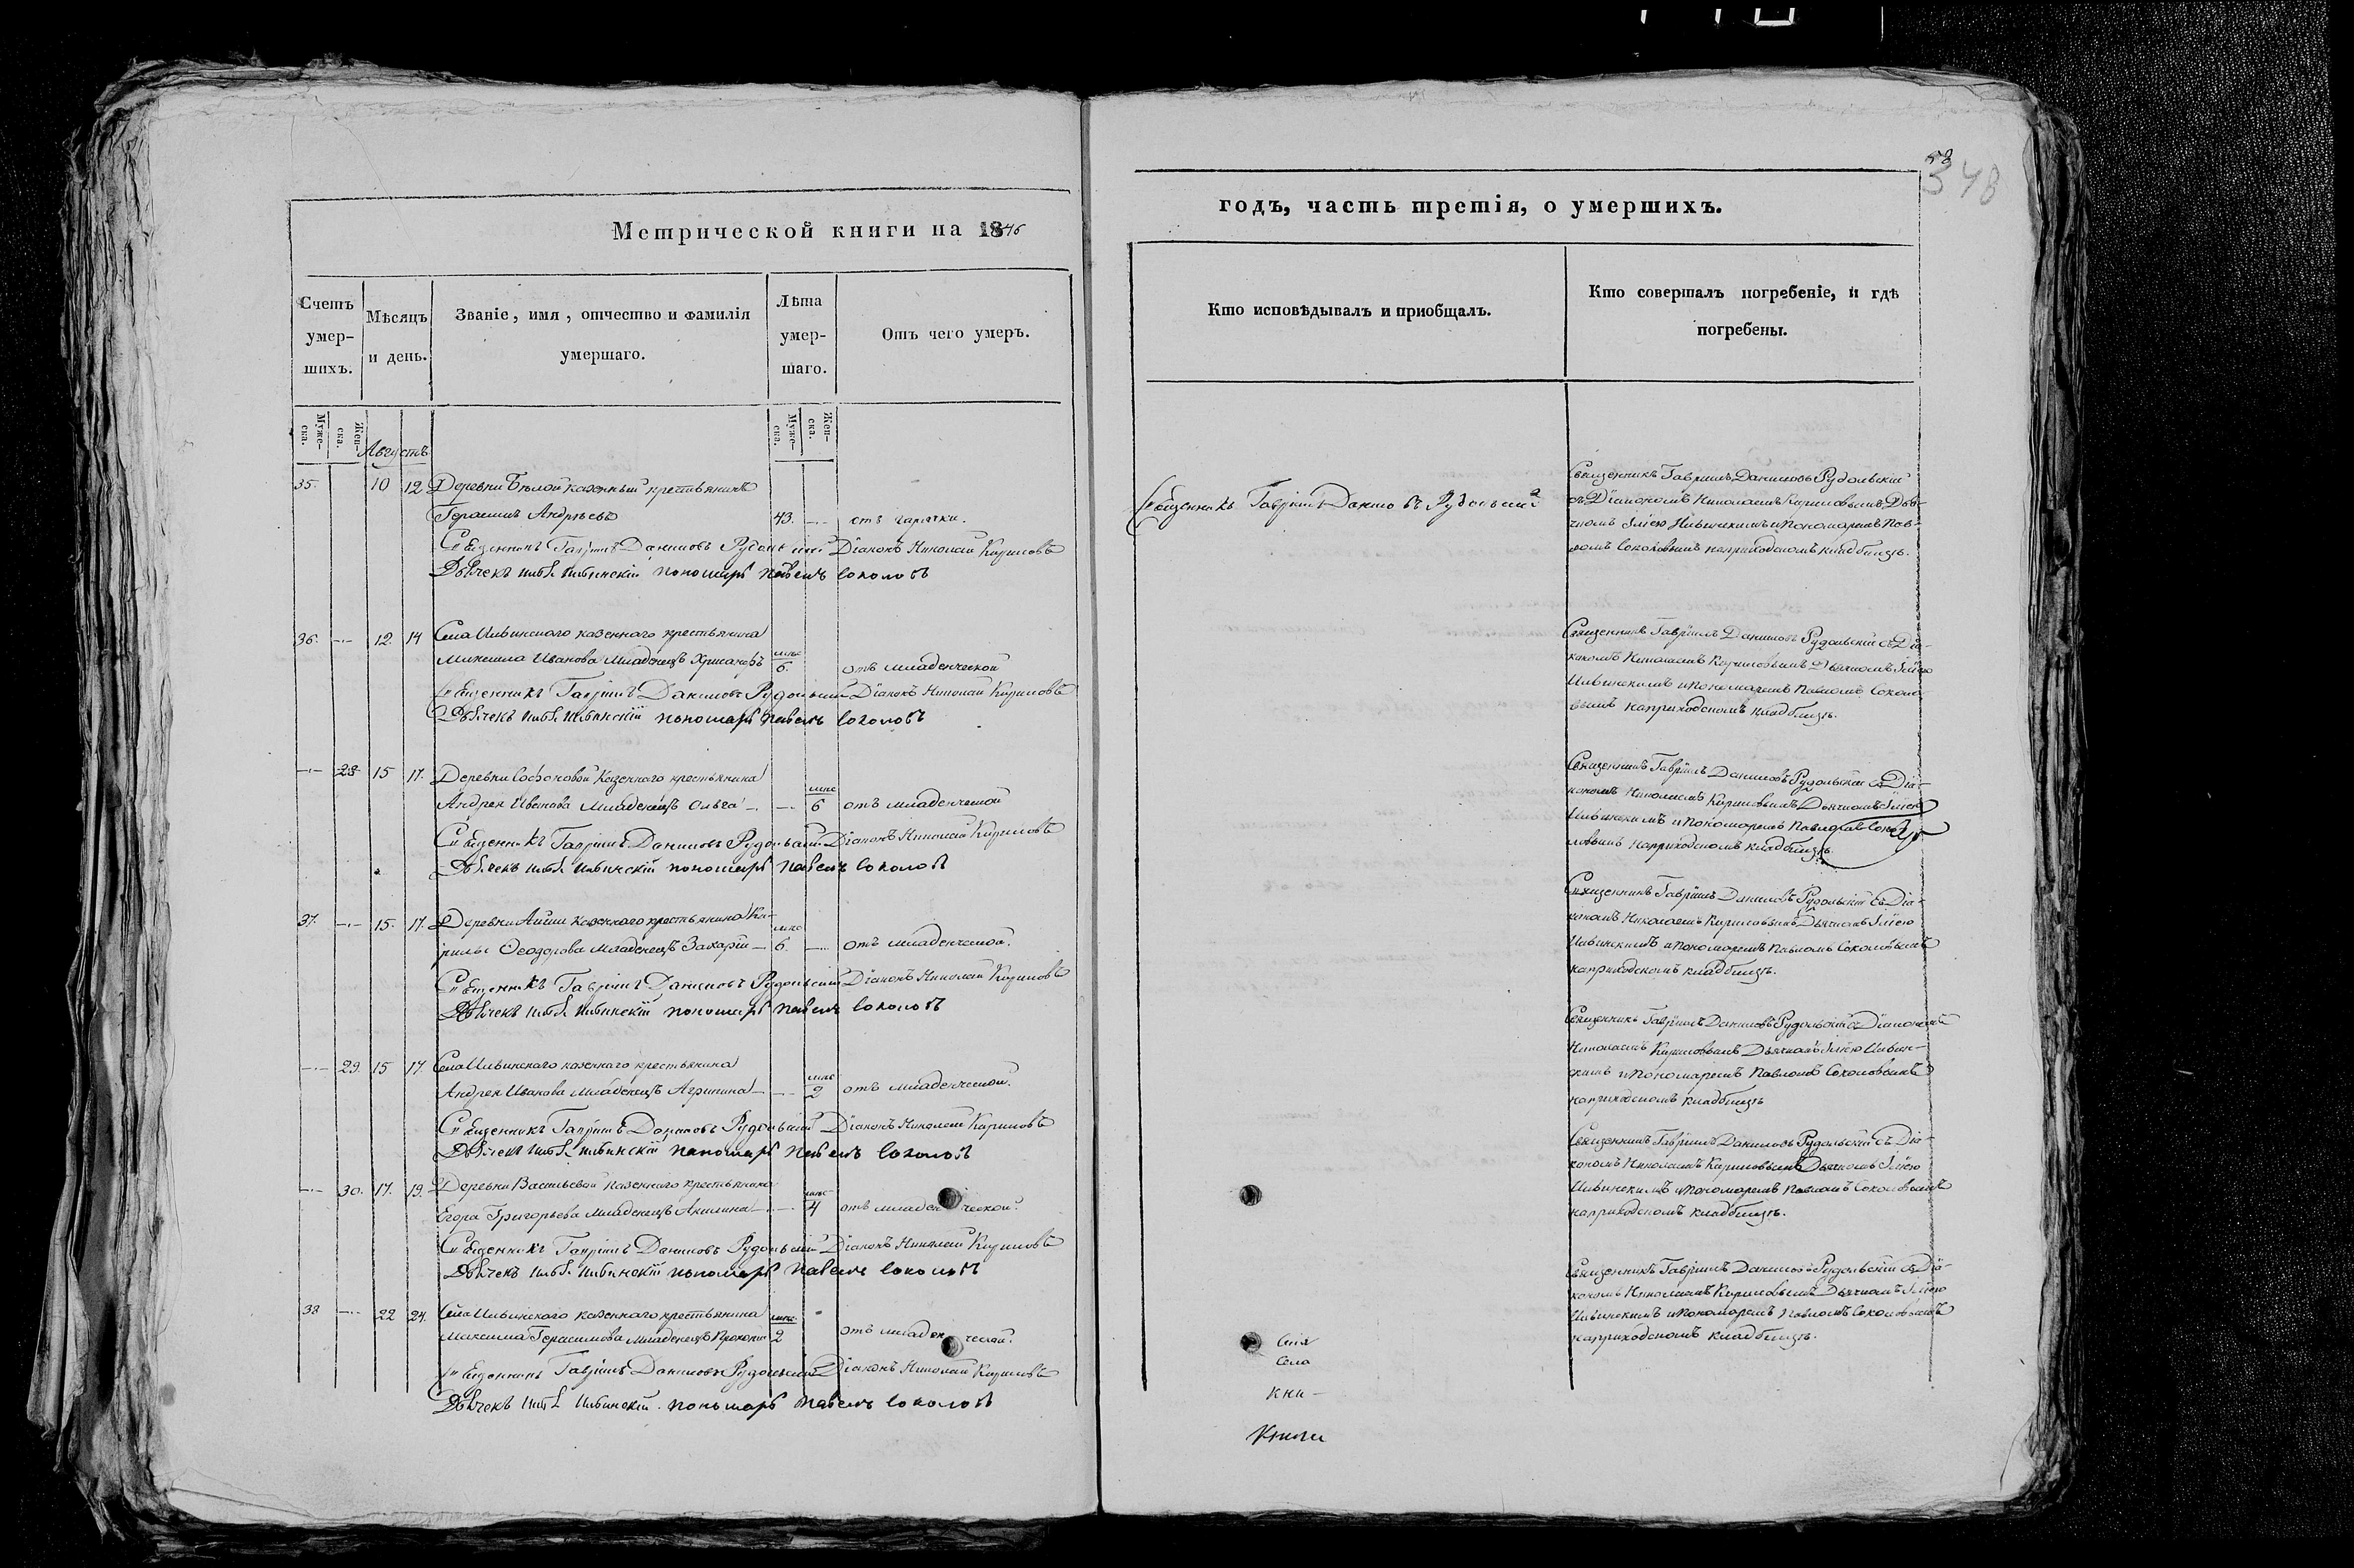 348
Метрической книги на 1846
годъ, часть третія, о умершихъ.
Счетъ умер-шихъ.
Мѣсяцъ и день.
Званіе, имя, отчество и фамилія умершаго.
Лѣта умер-шаго.
Отъ чего умеръ.
Кто исповѣдывалъ и приобщалъ.
Кто совершалъ погребеніе, и гдѣ погребены.
Муже-ска.
Жен-ска.
Муже-ска.
Жен-ска.
Августъ
35. 10 12 Деревни Бѣлой казенный крестьянинъ
Герасимъ Андреевъ 43. отъ горячки.
Священникъ Гавріилъ Даниловъ Рудольскій Діаконъ Николай Кириловъ
Дьячекъ Ильинскій пономарь Павелъ Соколовъ
Священникъ Гавріилъ Даниловъ Рудольскій
Священникъ Гавріилъ Даниловъ Рудольскій
съ Діакономъ Николаемъ Кириловымъ Дья-
чкомъ Ильинскимъ и пономаремъ Пав-
ломъ Соколовымъ на приходскомъ кладбищѣ.
36. 12 14 Села Ильинскаго казеннаго крестьянина
Иванова младенецъ мѣс 6. отъ младенческой
Священникъ Гавріилъ Даниловъ Рудольскій Діаконъ Николай Кириловъ
Дьячекъ Ильинскій пономарь Павелъ Соколовъ
Священникъ Гавріилъ Даниловъ Рудольскій съ Діа-
кономъ Николаемъ Кириловымъ Дьячкомъ
Ильинскимъ и пономаремъ Павломъ Соколо-
вымъ на приходскомъ кладбищѣ.
28 15 17. Деревни Софоновой казеннаго крестьянина
Андрея Иванова младенецъ Ольга мѣс 6 отъ младенческой
Священникъ Гавріилъ Даниловъ Рудольскій Діаконъ Николай Кириловъ
Дьячекъ Ильинскій пономарь Павелъ Соколовъ
Священникъ Гавріилъ Даниловъ Рудольскій съ Діа-
кономъ Николаемъ Кириловымъ Дьячкомъ
Ильинскимъ и пономаремъ Павломъ Соко-
ловымъ на приходскомъ кладбищѣ.
37. 15. 17. Деревни казеннаго крестьянина Ки-
рилы Ѳеодорова младенецъ Захарій мѣс 6. отъ младенческой.
Священникъ Гавріилъ Даниловъ Рудольскій Діаконъ Николай Кириловъ
Дьячекъ Ильинскій пономарь Павелъ Соколовъ
Священникъ Гавріилъ Даниловъ Рудольскій съ Діа-
кономъ Николаемъ Кириловымъ Дьячкомъ
Ильинскимъ и пономаремъ Павломъ Соколовымъ
на приходскомъ кладбищѣ.
29. 15 17 Села Ильинскаго казеннаго крестьянина
Андрея Иванова младенецъ Агрипина мѣс 2 отъ младенческой.
Священникъ Гавріилъ Даниловъ Рудольскій Діаконъ Николай Кириловъ
Дьячекъ Ильинскій пономарь Павелъ Соколовъ
Священникъ Гавріилъ Даниловъ Рудольскій съ Діакономъ
Николаемъ Кириловымъ Дьячкомъ Ильин-
скимъ и пономаремъ Павломъ Соколовымъ
на приходскомъ кладбищѣ
30. 17. 19. Деревни Васильевой казеннаго крестьянина
Егора Григорьева младенецъ Акилина мѣс 4 отъ младенческой.
Священникъ Гавріилъ Даниловъ Рудольскій Діаконъ Николай Кириловъ
Дьячекъ Ильинскій пономарь Павелъ Соколовъ
Священникъ Гавріилъ Даниловъ Рудольскій съ Діа-
кономъ Николаемъ Кириловымъ Дьячкомъ
Ильинскимъ и пономаремъ Павломъ Соколовымъ
на приходскомъ кладбищѣ.
38 22 24. Села Ильинскаго казеннаго крестьянина
Максима Герасимова младенецъ Прокопій мѣс 2 отъ младенческой.
Священникъ Гавріилъ Даниловъ Рудольскій Діаконъ Николай Кириловъ
Дьячекъ Ильинскій пономарь Павелъ Соколовъ
Священникъ Гавріилъ Даниловъ Рудольскій съ Діа-
кономъ Николаемъ Кириловымъ Дьячкомъ
Ильинскимъ и пономаремъ Павломъ Соколовымъ
на приходскомъ кладбищѣ.
Села
кни-
Книги